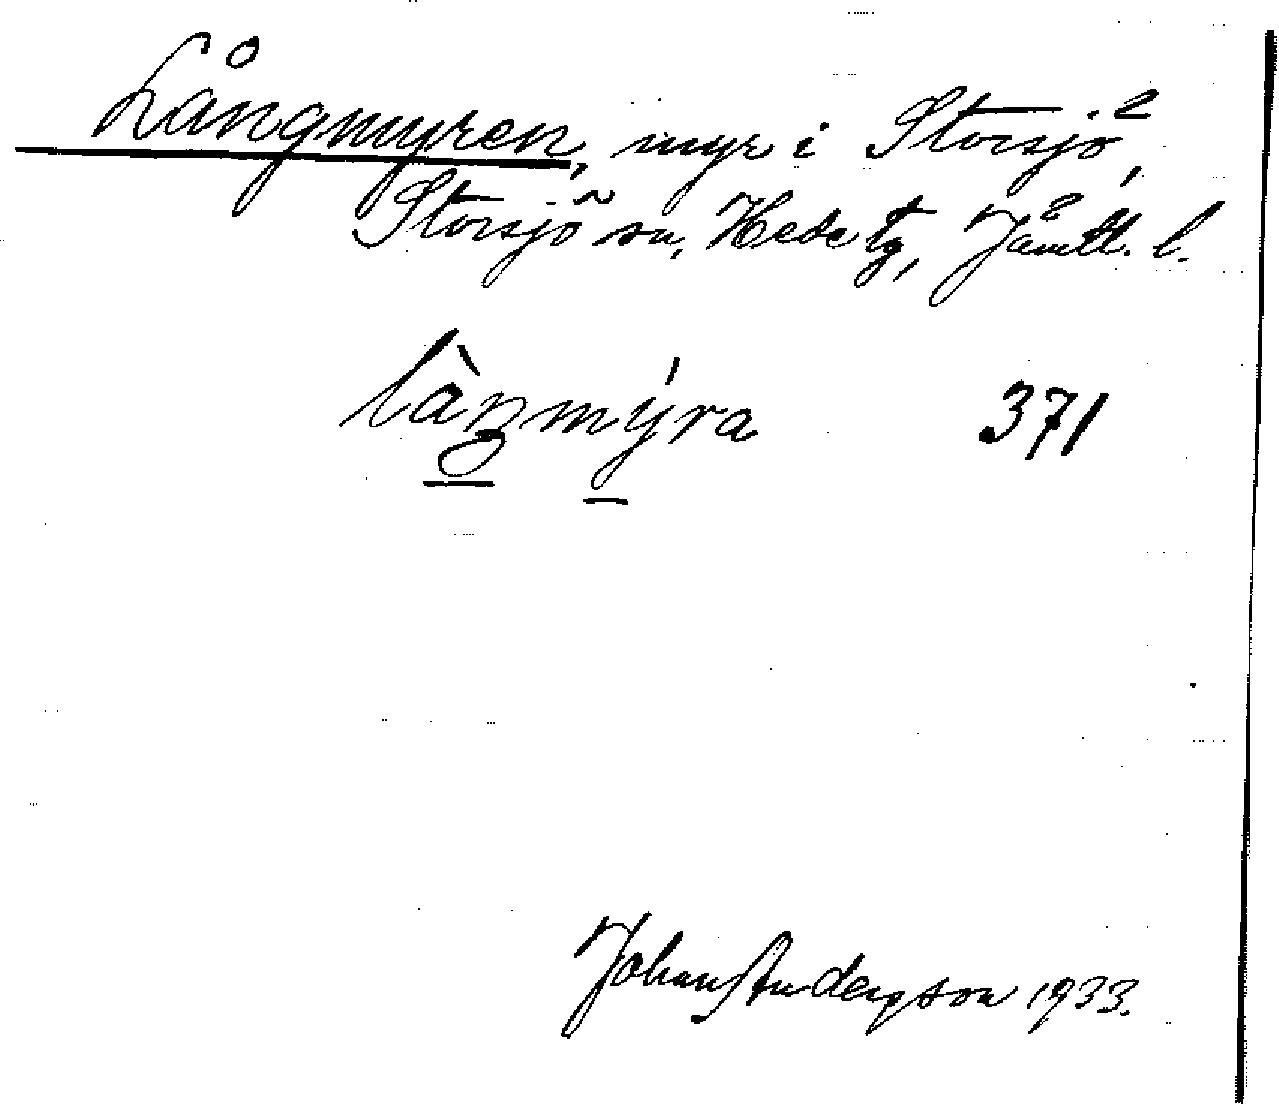 Långmyren, myr i Storsjö,
Storsjö sn, Hede tg, Jämtl. l.
làŋmýra 371
Johan Andersson 1933.